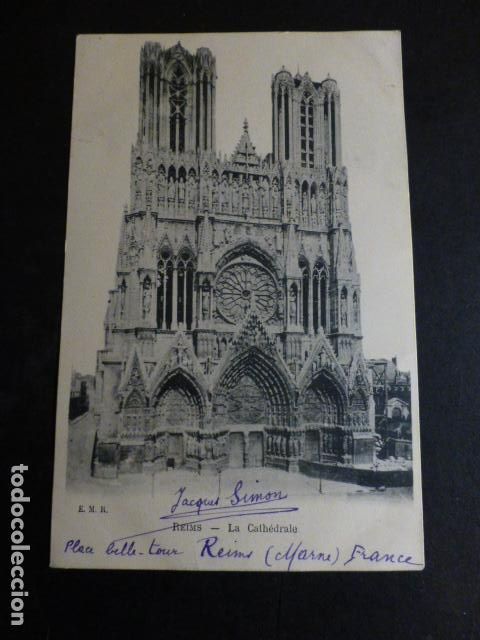 E. M. R.
Jacques Simon
REIMS — La Cathédrale
Place belle-tour Reims (Marne) France
todocoleccion.net